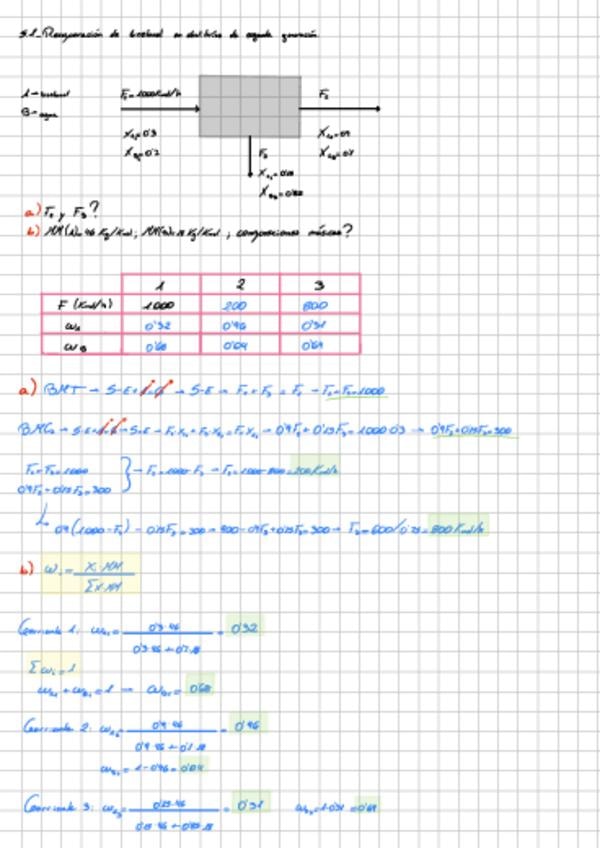 5.1_Recuperación de bioetanol en destilerías de segunda generación
A→ bioetanol
B→ agua
F₁=1000Kmol/h
F₂
X₁₂=0'9
F₃
a) F₂ y F₃?
b) MM(A)=46 Kg/Kmol; MM(B)=18 Kg/Kmol; composiciones másicas?
1 2 3
F (Kmol/h) 1000 200 800
ωA 0'32 0'96 0'31
ωB 0'68 0'04 0'69
a) BMT → S-E+A-G → S-E → F₂+F₃ = F₁ → F₂+F₃=1000
F₂+F₃=1000
0'9F₂+0'15F₃=300
→ F₂=1000-F₃ → F₂=1000-800=200Kmol/h
0'9(1000-F₃)+0'15F₃=300→900-0'9F₃+0'15F₃=300→ F₃=600/0'75=800Kmol/h
b) ωᵢ= X·MM / ΣX·MM
Corriente 1: = 0'3·46 / 0'3·46+0'7·18 = 0'32
Σωᵢ=1
ωA₁+ωB₁=1 → ωB₁= 0'68
Corriente 2: = 0'9·46 / 0'9·46+0'1·18 = 0'96
= 1-0'96=0'04
Corriente 3: = 0'15·46 / 0'15·46+0'85·18 = 0'31 =1-0'31=0'69